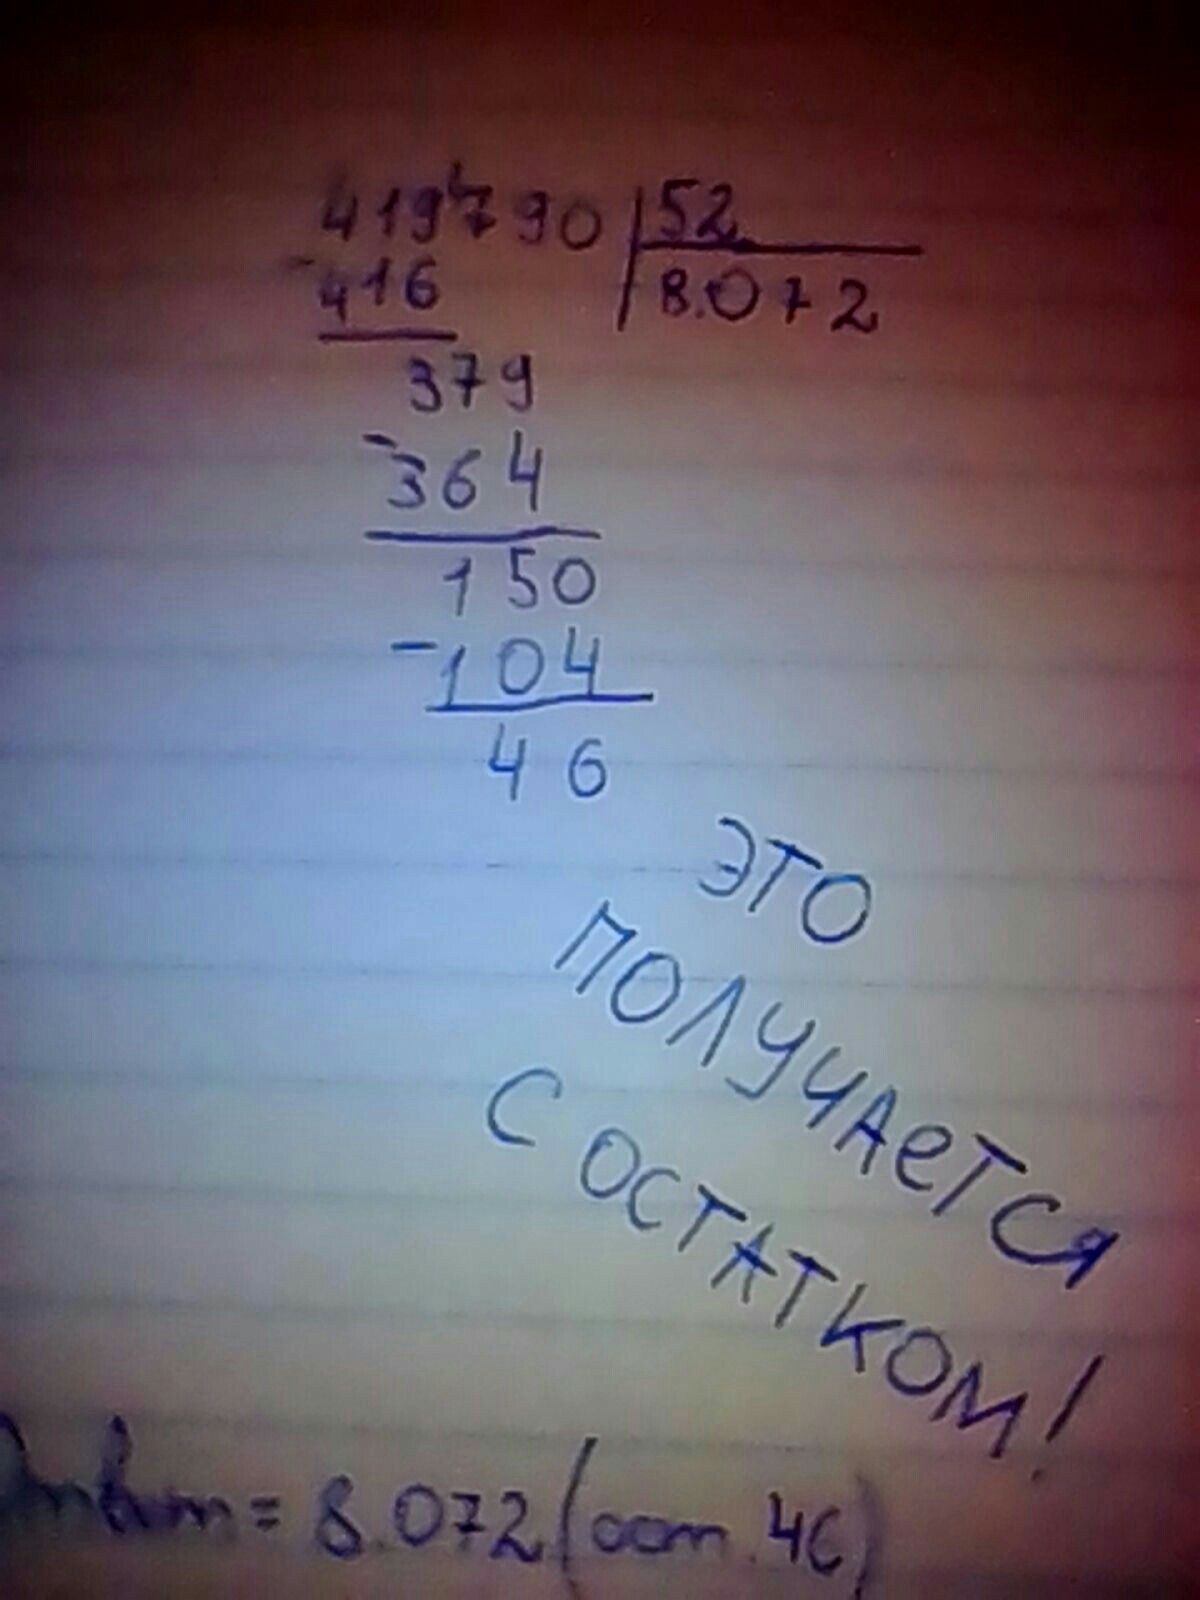 419790 52
-416 8.072
379
-364
150
-104
46
ЭТО
ПОЛУЧАЕТСЯ
С ОСТАТКОМ!
Ответ = 8.072 (ост. 46)